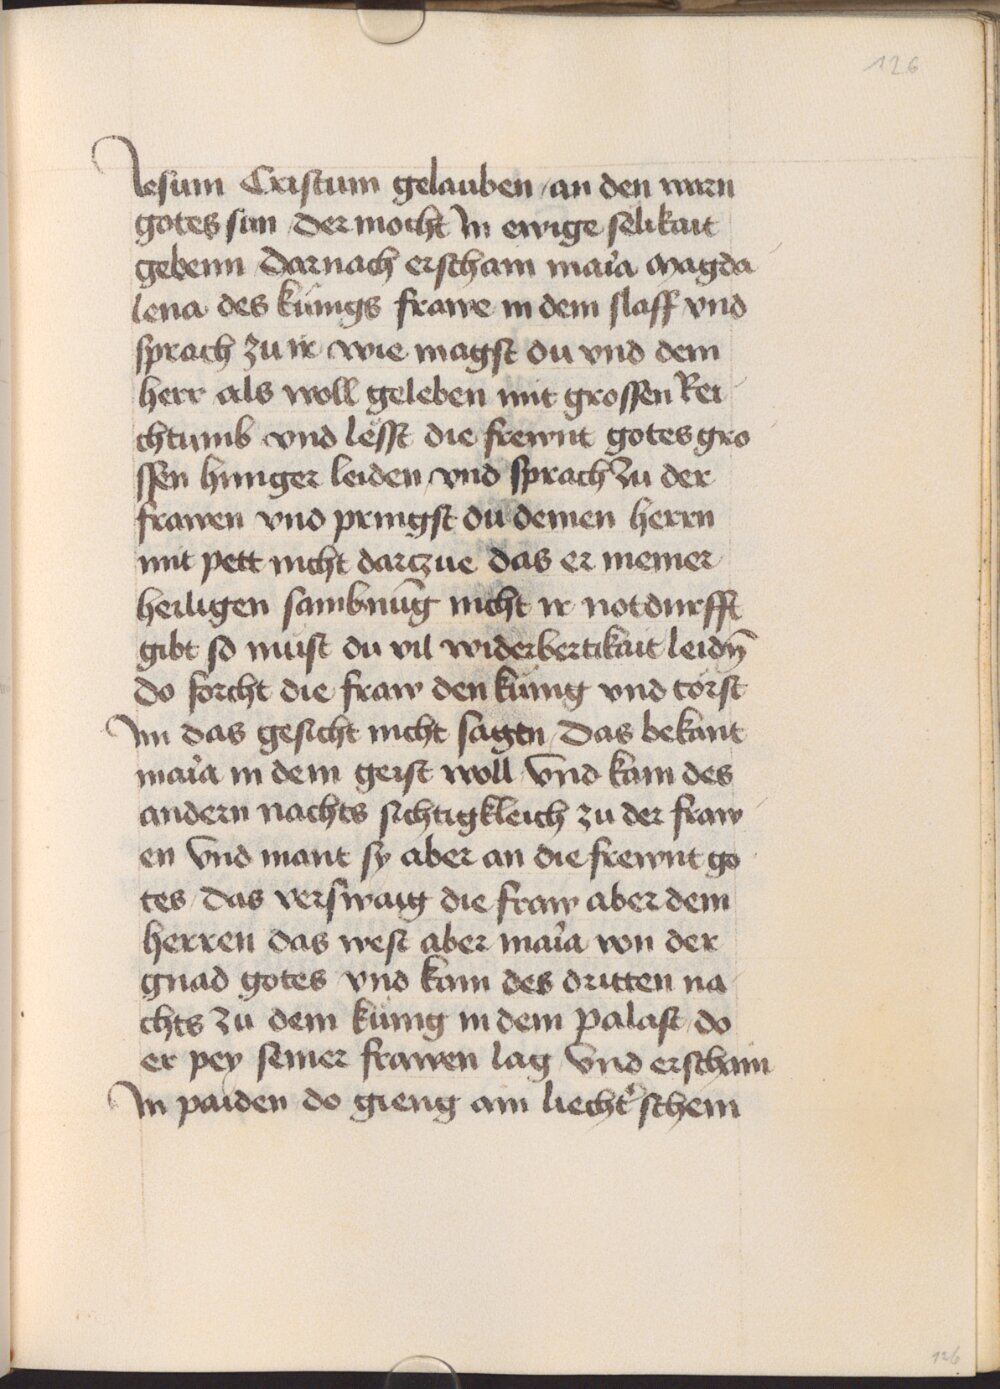 126
Jesum Cristum gelauben / an den warn
gotes sun / der mocht In ewige selikait
gebenn / Darnach erscham maria Magda
lena des künigs frawe in dem slaff vnd
sprach zu ir wie magst du vnd dem
herr als woll geleben mit grossen Rei
chtumb vnd lesst die frewnt gotes gro
ssen hunger leiden / vnd sprach zu der
frawen vnd pringst du deinen herrn
mit pett nicht dartzue das er meiner
heiligen sambnūg nicht ir notdurfft
gibt so muist du vil widerbertikait leidn̄
do forcht die fraw den künig vnd torst
Im das gesicht nicht sagen / Das bekant
maria in dem geist woll Vnd kam des
andern nachts sichtigkleich zu der fraw
en Vnd mant sy aber an die frewnt go
tes / Das verswaig die fraw aber dem
herren das west aber maria von der
gnad gotes vnd kam des dritten na
chts zu dem künig in dem palast / do
er pey seiner frawen lag Vnd erscham
In paiden do gieng ain liechter schein
126